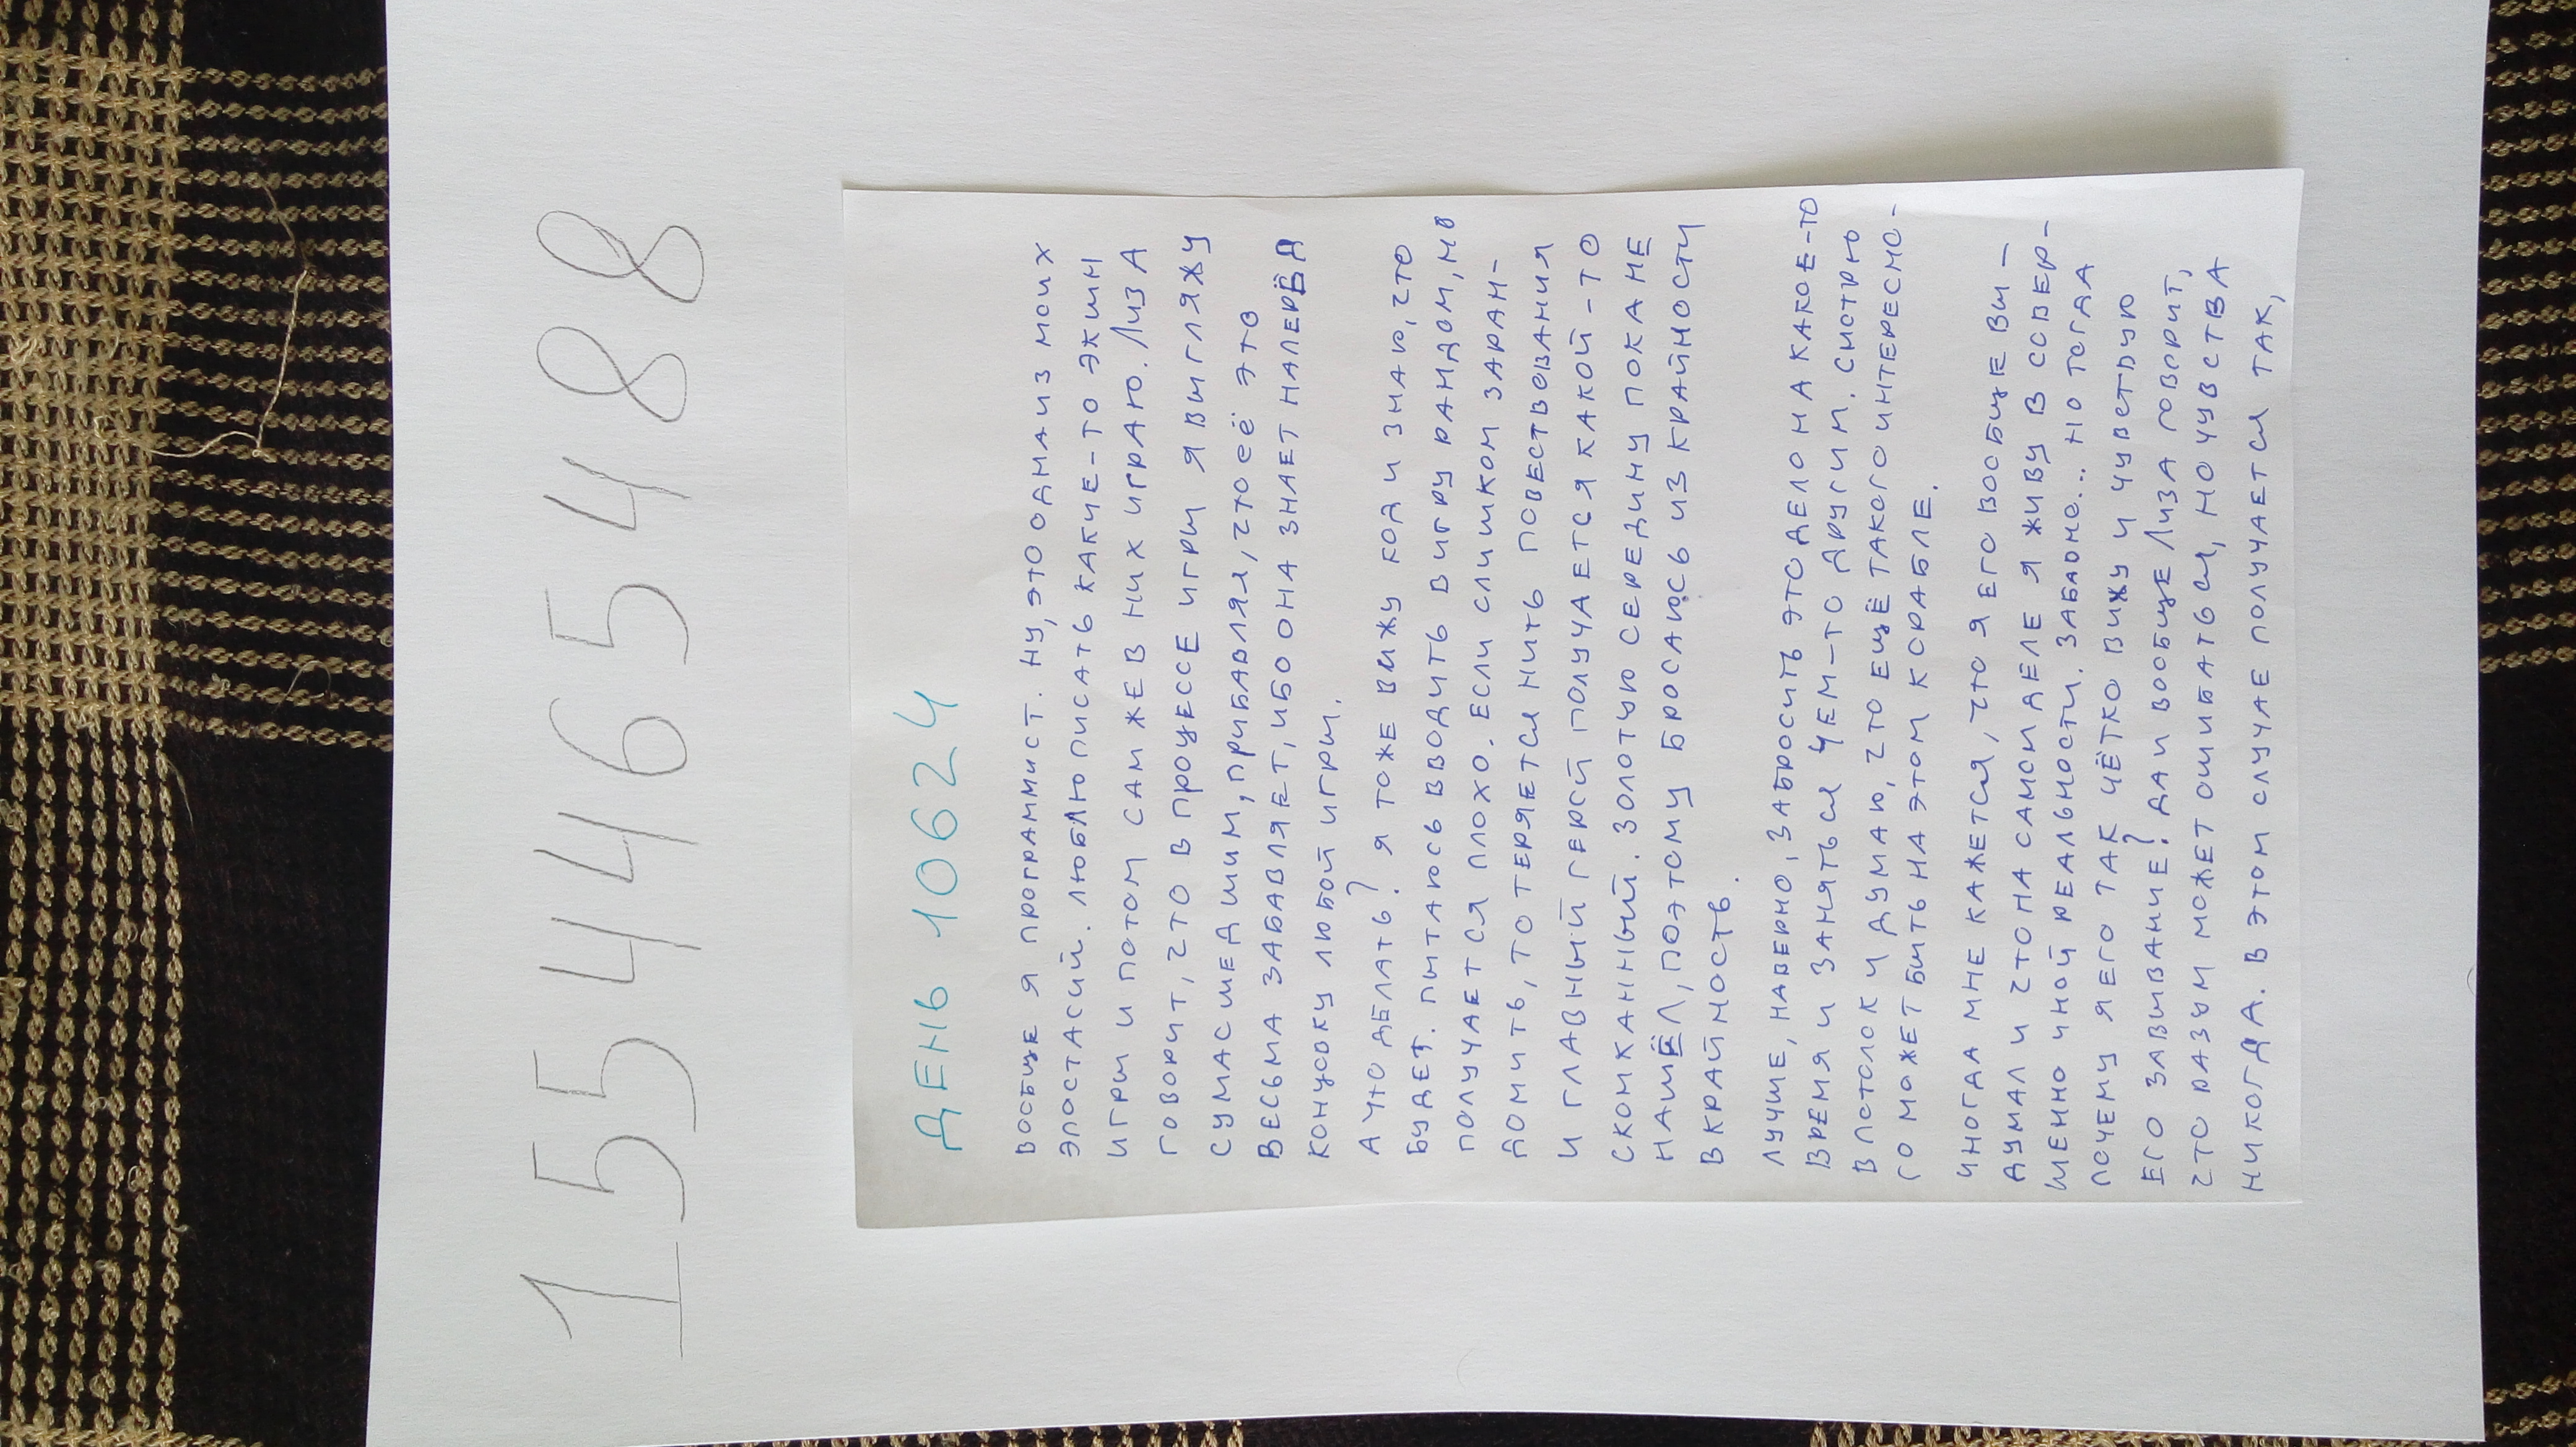 1554465488
ДЕНЬ 10624
ВООБЩЕ Я ПРОГРАММИСТ. НУ, ЭТО ОДНА ИЗ МОИХ
ЭПОСТАСИЙ. ЛЮБЛЮ ПИСАТЬ КАКИЕ-ТО ЭКШН
ИГРЫ И ПОТОМ САМ ЖЕ В НИХ ИГРАЮ. ЛИЗА
ГОВОРИТ, ЧТО В ПРОЦЕССЕ ИГРЫ Я ВЫГЛЯЖУ
СУМАСШЕДШИМ, ПРИБАВЛЯЯ, ЧТО ЕЁ ЭТО
ВЕСЬМА ЗАБАВЛЯЕТ, ИБО ОНА ЗНАЕТ НАПЕРЁД
КОНЦОВКУ ЛЮБОЙ ИГРЫ.
А ЧТО ДЕЛАТЬ? Я ТОЖЕ ВИЖУ КОД И ЗНАЮ, ЧТО
БУДЕТ. ПЫТАЮСЬ ВВОДИТЬ В ИГРУ РАНДОМ, НО
ПОЛУЧАЕТСЯ ПЛОХО. ЕСЛИ СЛИШКОМ ЗАРАН-
ДОМИТЬ, ТО ТЕРЯЕТСЯ НИТЬ ПОВЕСТВОВАНИЯ
И ГЛАВНЫЙ ГЕРОЙ ПОЛУЧАЕТСЯ КАКОЙ-ТО
СКОМКАННЫЙ. ЗОЛОТУЮ СЕРЕДИНУ ПОКА НЕ
НАШЁЛ, ПОЭТОМУ БРОСАЮСЬ ИЗ КРАЙНОСТИ
В КРАЙНОСТЬ.
ЛУЧШЕ, НАВЕРНО, ЗАБРОСИТЬ ЭТО ДЕЛО НА КАКОЕ-ТО
ВРЕМЯ И ЗАНЯТЬСЯ ЧЕМ-ТО ДРУГИМ. СМОТРЮ
В ПОТОЛОК И ДУМАЮ, ЧТО ЕЩЁ ТАКОГО ИНТЕРЕСНО-
ГО МОЖЕТ БЫТЬ НА ЭТОМ КОРАБЛЕ.
ИНОГДА МНЕ КАЖЕТСЯ, ЧТО Я ЕГО ВООБЩЕ ВЫ-
ДУМАЛ И ЧТО НА САМОМ ДЕЛЕ Я ЖИВУ В СОВЕР-
ШЕННО ИНОЙ РЕАЛЬНОСТИ. ЗАБАВНО... НО ТОГДА
ПОЧЕМУ Я ЕГО ТАК ЧЁТКО ВИЖУ И ЧУВСТВУЮ
ЕГО ЗАВЫВАНИЕ? ДА И ВООБЩЕ ЛИЗА ГОВОРИТ,
ЧТО РАЗУМ МОЖЕТ ОШИБАТЬСЯ, НО ЧУВСТВА
НИКОГДА. В ЭТОМ СЛУЧАЕ ПОЛУЧАЕТСЯ ТАК,